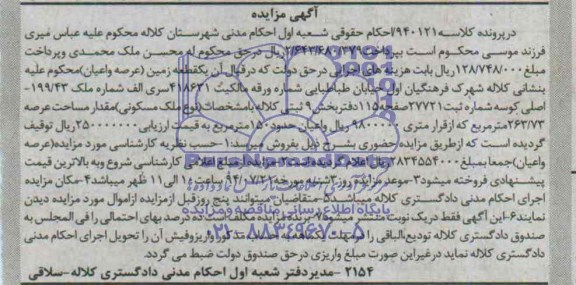 آگهی مزایده
درپرونده کلاسه ۹۴۰۱۲۱/احکام حقوقی شعبه اول احکام مدنی شهرستان کلاله محکوم علیه عباس میری
فرزند موسی محکوم است بپرداخت ۲/۶۴۳/۶۸۰/۳۷۹ ریال درحق محکوم له محسن ملک محمدی وپرداخت
مبلغ ۱۲۸/۷۴۸/۰۰۰ ریال بابت هزینه های اجرایی درحق دولت که درقبال آن یکقطعه زمین (عرصه واعیان) محکوم علیه
بنشانی کلاله شهرک فرهنگیان اول خیابان طباطبایی شماره ورقه مالکیت ۴۱۸۶۲۱ سری الف شماره ملک ۱۹۹/۴۳-
اصلی کوسه شماره ثبت ۲۷۷۲۱ صفحه ۱۱۵ دفتربخش ۹ ثبتی کلاله بامشخصات (نوع ملک مسکونی) مقدار مساحت عرصه
۲۶۳/۷۳ مترمربع که ازقرار متری ۹۸۰۰۰۰۰ ریال واعیان حدود ۱۵۰ مترمربع به قیمت ارزیابی ۲۵۰۰۰۰۰۰۰ ریال توقیف
گردیده است که ازطریق مزایده حضوری بشرح ذیل بفروش میرسد: ۱-حسب نظریه کارشناسی مورد مزایده (عرصه
واعیان) جمعا بمبلغ ۲۸۳۴۵۵۴۰۰۰ ریال اعلام گردیده است ۲-مزایده ازمبلغ اعلامی کارشناسی شروع وبه بالاترین قیمت
پیشنهادی فروخته میشود ۳-موعد مزایده روز ۳شنبه مورخه ۹۴/۰۷/۲ ساعت ۱۰ الی ۱۱ ظهر میباشد ۴-مکان مزایده
اجرای احکام مدنی دادگستری کلاله میباشد ۵-متقاضیان میتوانند پنج روزقبل ازمزایده ازاموال مورد مزایده دیدن
نمایند ۶-این آگهی فقط دریک نوبت منتشر میشود ۷-برنده مزایده ده درصد بهای احتمالی را فی المجلس به
صندوق دادگستری کلاله تودیع والباقی را درمهلت یکماهه به حساب واریزوفیش آن را تحویل اجرای احکام مدنی
دادگستری کلاله نماید درغیراین صورت مبلغ واریزی درحق صندوق دولت ضبط می گردد.
۲۱۵۴ -مدیردفتر شعبه اول احکام مدنی دادگستری کلاله-سلاقی
پایگاه اطلاع رسانی مناقصه و مزایده
۰۲۱-۸۸۳۴۹۶۷۰-۵